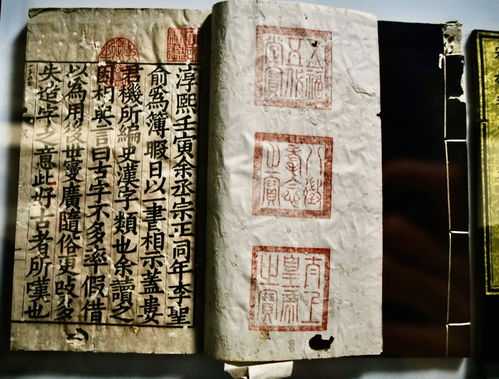 五福
五代
堂寶
八徵
耄念
之寶
太上
皇帝
之寶
淳熙壬寅余丞宗正同年李聖
俞為簿暇日以一書相示蓋婁
君機所編史漢字類也余讀之
因言曰古字不多率假借
以為用後世寖廣隨俗更改多
失造字之意此好古者所嘆也